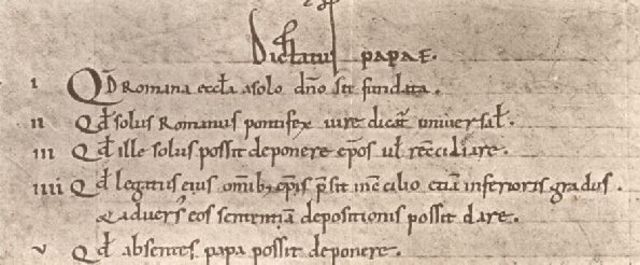 Dictatus papae.
i Qd Romana eccla a solo dno sit fundata.
ii Qd solus Romanus pontifex iure dicat universal.
iii Qd ille solus possit deponere epos ul reconciliare.
iiii Qd legatus eius omib; epis psit in concilio etiam inferioris gradus.
& adversus eos sententiam depositionis possit dare.
v Qd absentes papa possit deponere.